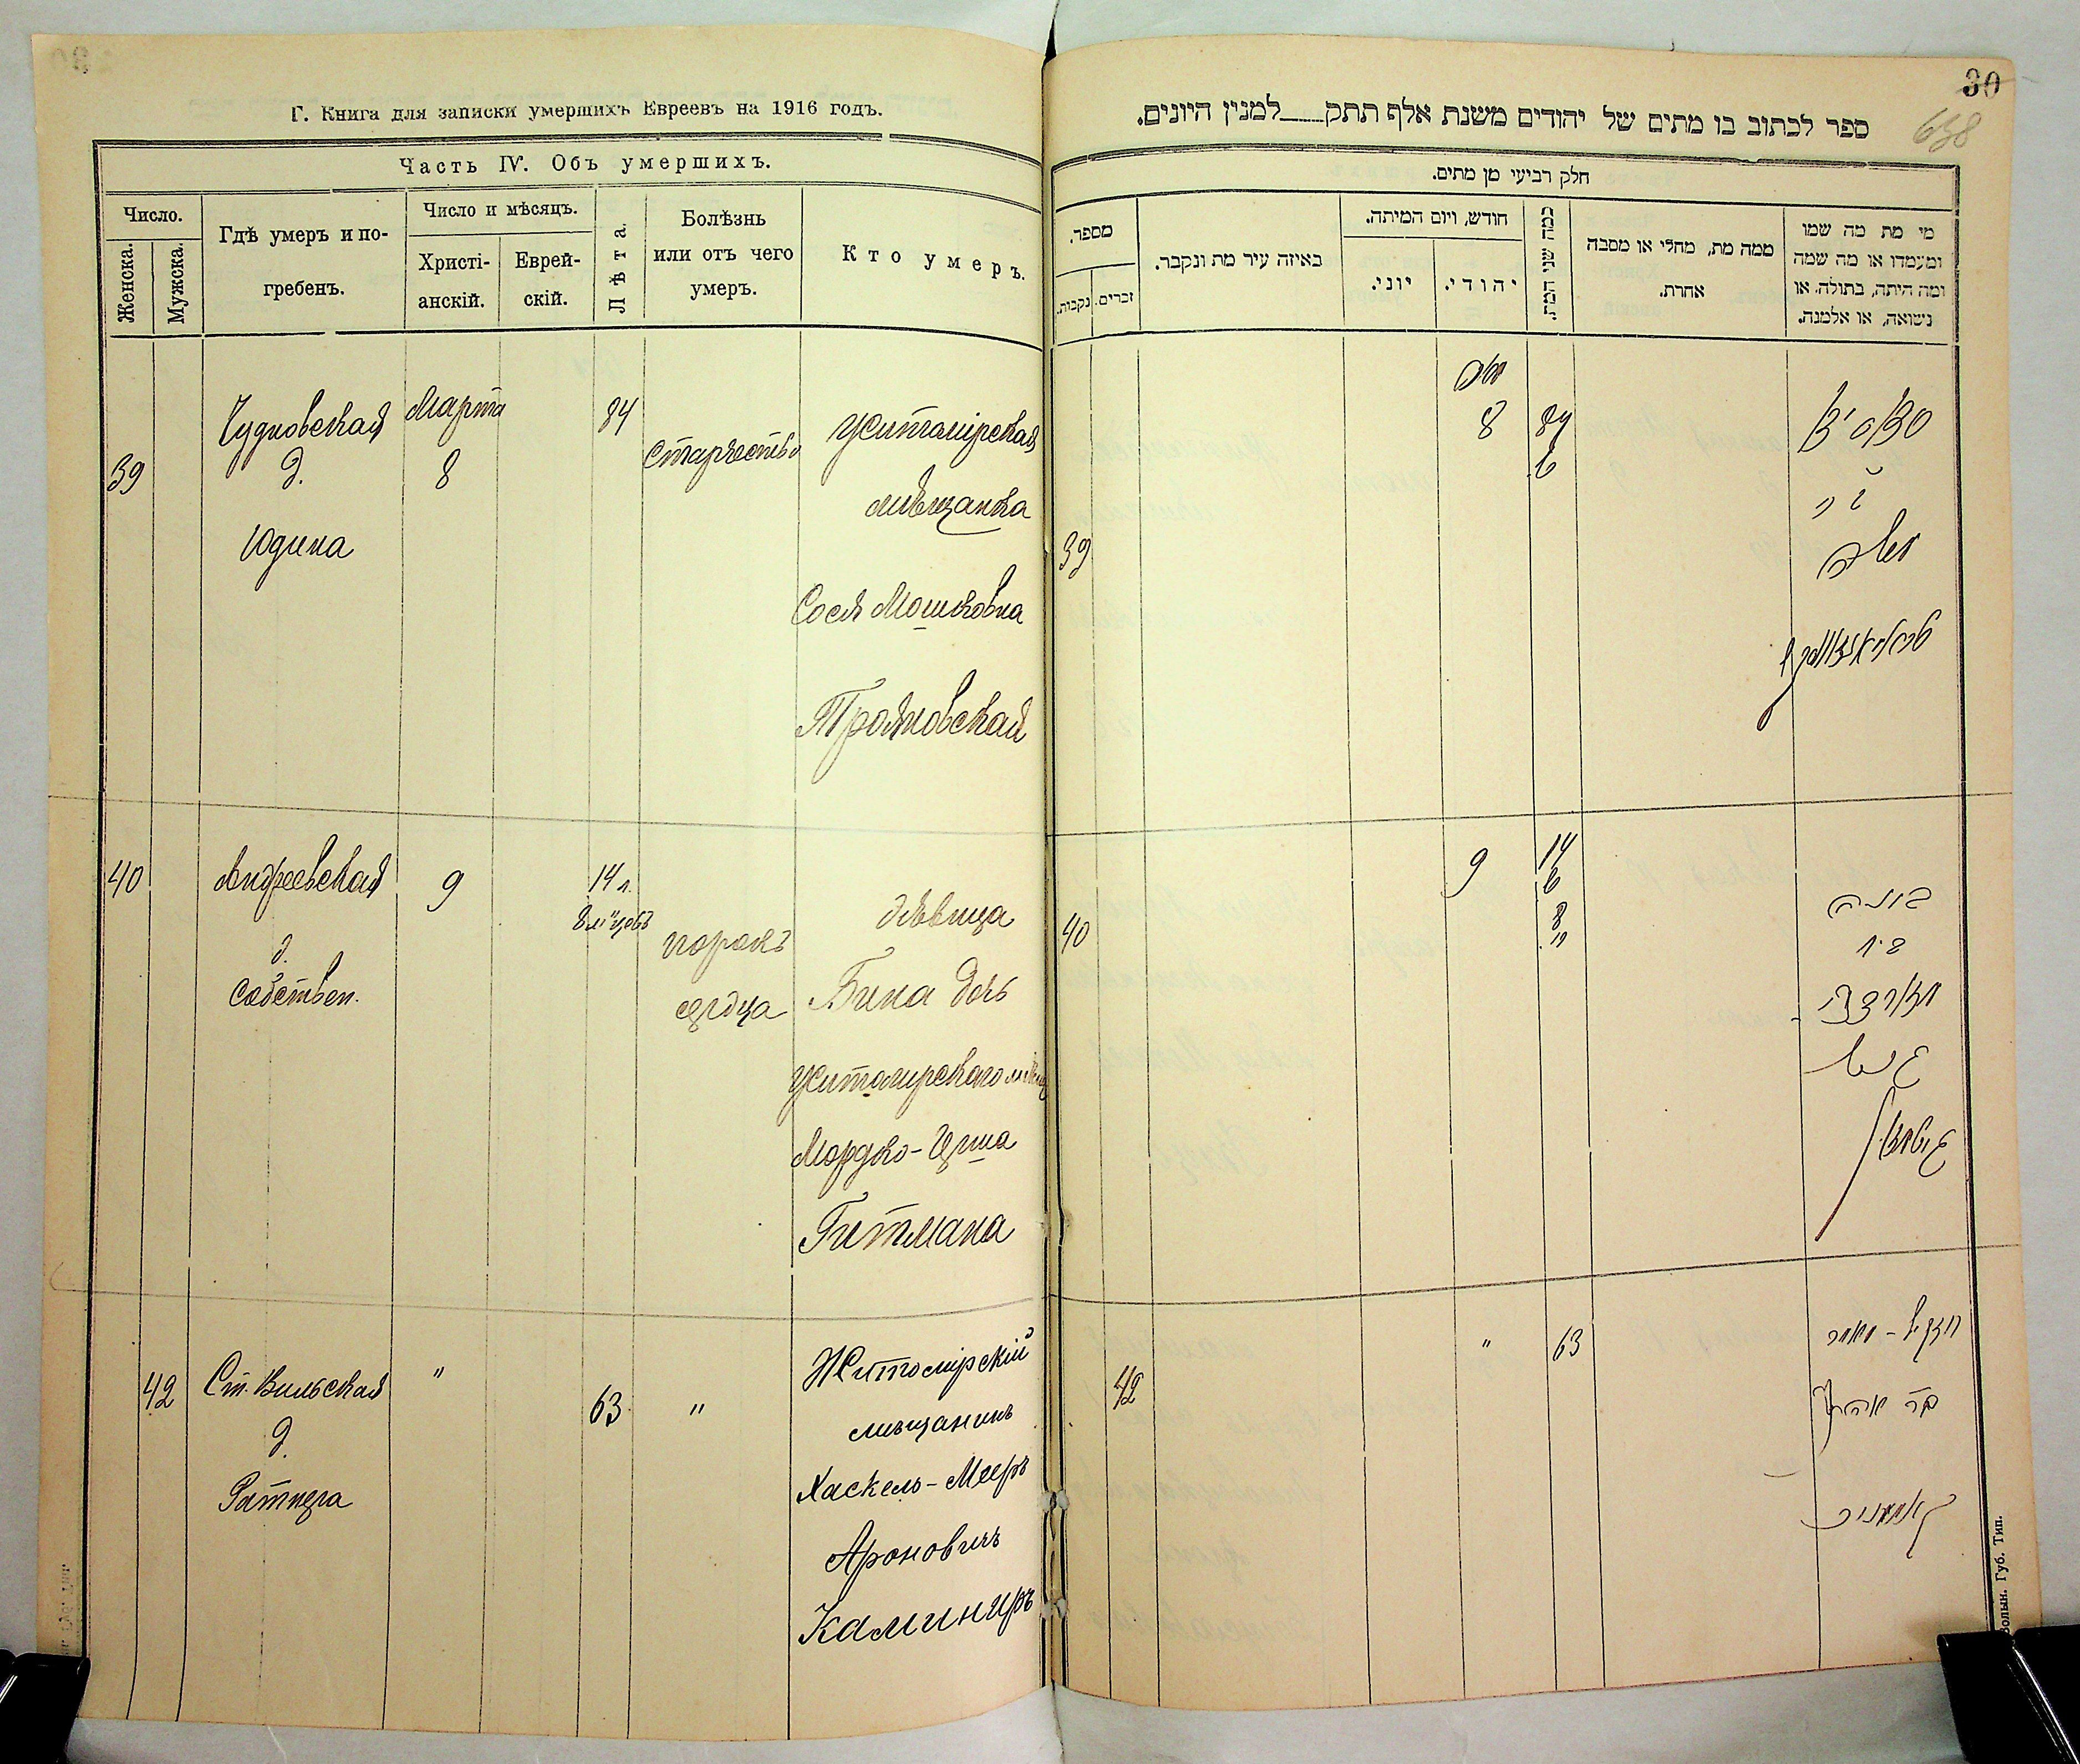 Г. Книга для записки умершихъ Евреевъ на 1916 годъ.
Часть IV. Объ умершихъ.
Число.
Женска.
Мужска.
Гдѣ умеръ и по-
гребенъ.
Число и мѣсяцъ.
Христі-
анскій.
Еврей-
скій.
Лѣта.
Болѣзнь
или отъ чего
умеръ.
Кто умеръ.
39
Чудновская
д.
Юдина
Марта
8
84
старчество
Житомірская
мѣщанка
Сося Мошковна
Трояновская
40
Андреевская
д.
собствен.
9
14 л.
8 м"цевъ
порокъ
сердца
дѣвица
Бина дочь
Житомирского мѣщ
Мордко-
Гитмана
42
Ст. Вильская
д.
Ратнера
"
63
"
Житомірскій
мѣщанинъ
Хаскель-Меер
Ароновичъ
Каминиръ
30
638
ספר לכתוב בו מתים של יהודים משנת אלף תתק למנין היונים.
חלק רביעי מן מתים.
מספר.
נקבות.
זכרים.
באיזה עיר מת ונקבר.
חודש, ויום המיתה.
יוני.
יהודי.
כמה שני המת.
ממה מת, מחלי או מסבה
אחרת.
מי מת מה שמו
ומעמדו או מה שמה
ומה היתה, בתולה, או
נשואה, או אלמנה.
39
8
84
משה
40
9
14
8
בינה
42
"
63
יחזקאל - מאיר
בר אהרן
קאמיניר
Волын. Губ. Тип.